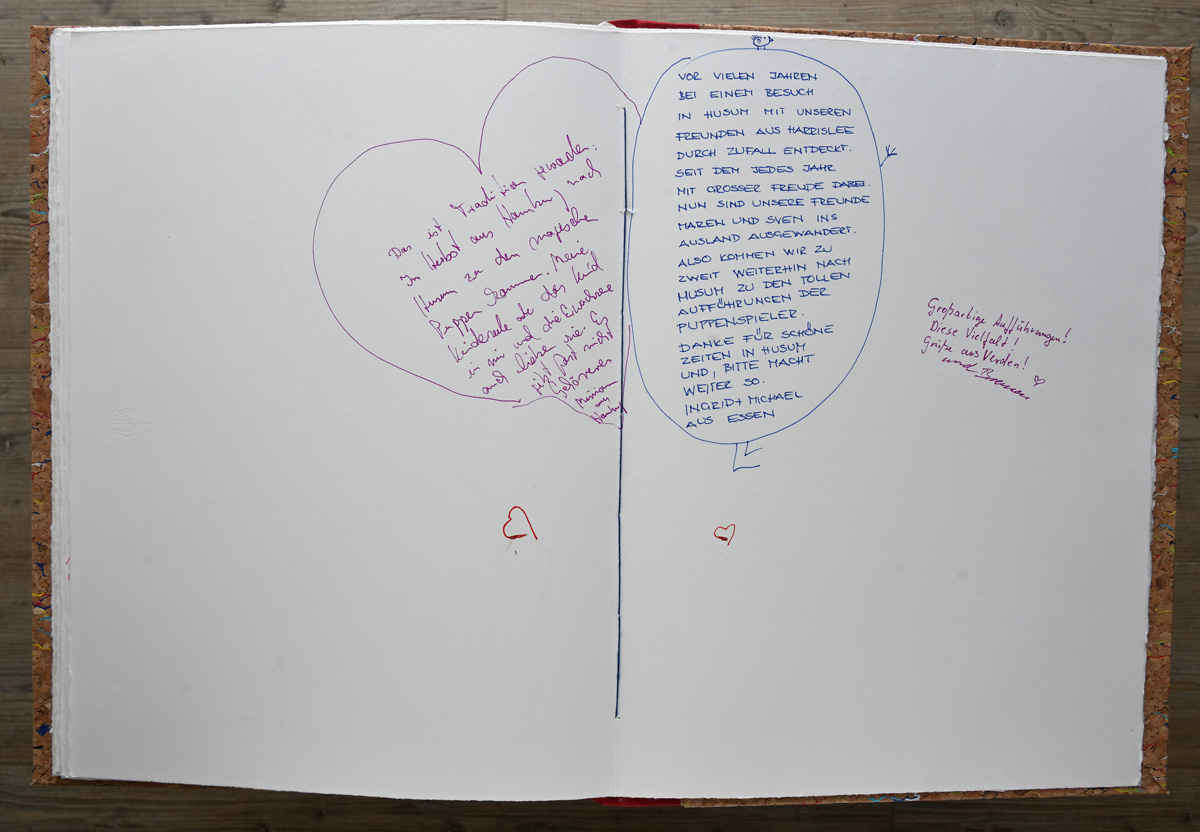 Das ist Tradition geworden:
Im Herbst aus Hamburg nach
Husum zu den magischen
Puppen kommen. Meine
Kinderseele oder das Kind
in mir und die Erwachsene
auch lieben sie. Es
gibt fast nicht
Schöneres
Miriam
aus
Hamburg
VOR VIELEN JAHREN
BEI EINEM BESUCH
IN HUSUM MIT UNSEREN
FREUNDEN AUS HARRISLEE
DURCH ZUFALL ENTDECKT.
SEIT DEM JEDES JAHR
MIT GROSSER FREUDE DABEI.
NUN SIND UNSERE FREUNDE
MAREN UND SVEN INS
AUSLAND AUSGEWANDERT.
ALSO KOMMEN WIR ZU
ZWEIT WEITERHIN NACH
HUSUM ZU DEN TOLLEN
AUFFÜHRUNGEN DER
PUPPENSPIELER.
DANKE FÜR SCHÖNE
ZEITEN IN HUSUM
UND, BITTE MACHT
WEITER SO.
INGRID+ MICHAEL
AUS ESSEN
Großartige Aufführungen!
Diese Vielfalt!
Grüße aus Verden!
und Bremen